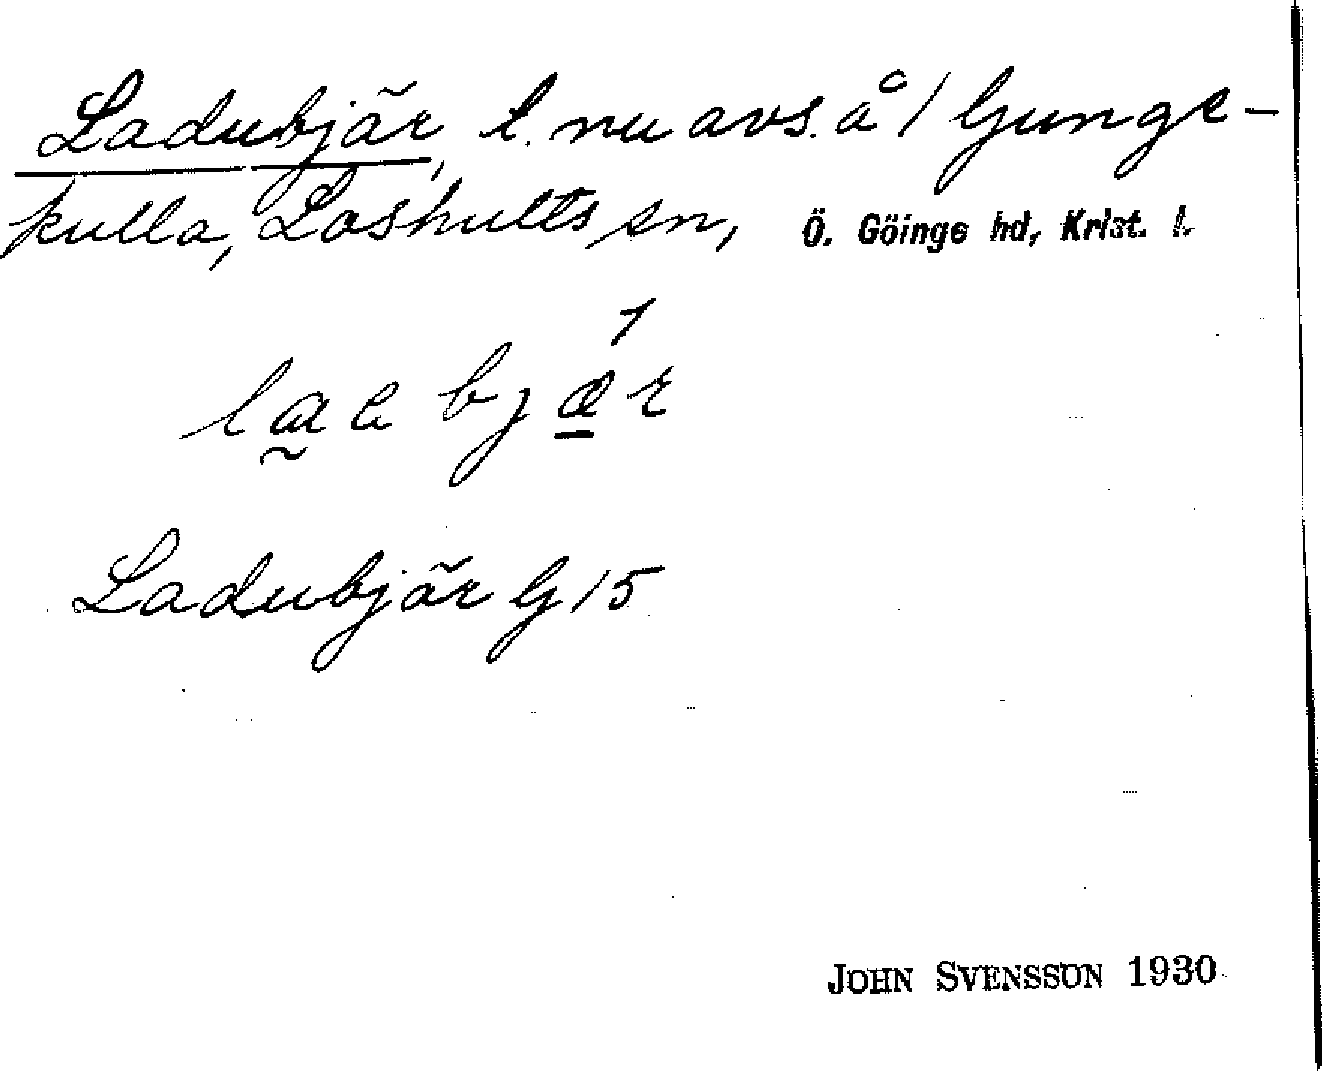 Ladubjär, t. nu avs. å 1 Ljunge-
kulla, Loshults sn, Ö. Göinge hd, Krist. l.
Ladubjär G 15
JOHN SVENSSON 1930